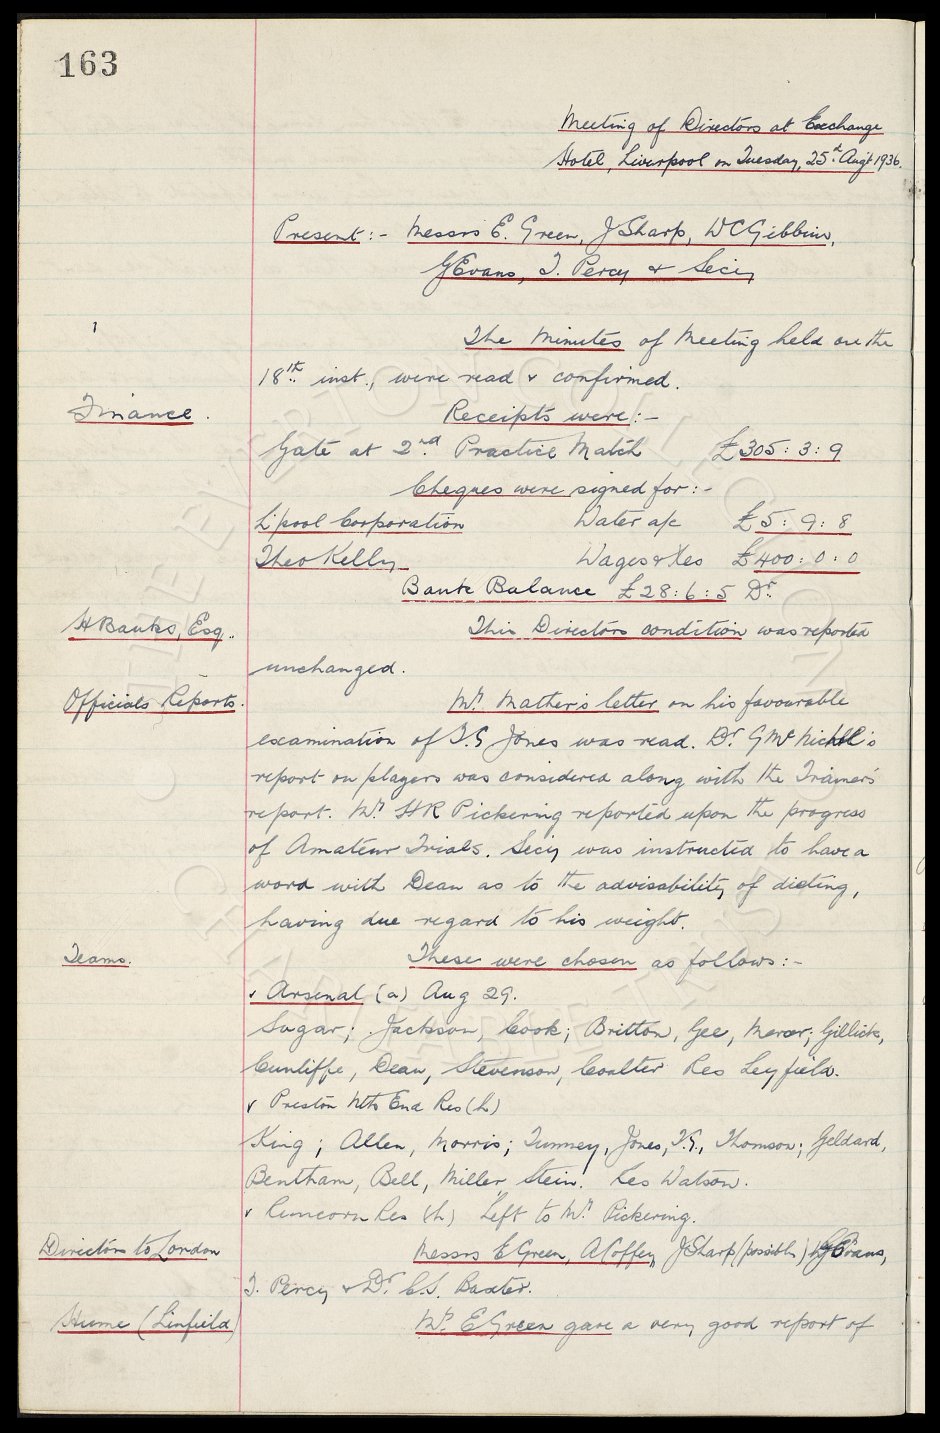 163
Meeting of Directors at Exchange
Hotel, Liverpool on Tuesday, 25th Augt 1936.
Present :- Messrs E. Green, J Sharp, W C Gibbins,
G Evans, T. Percy & Secy
The Minutes of Meeting held on the
18th inst., were read & confirmed.
Finance. Receipts were :-
Gate at 2nd Practice Match £305 : 3 : 9
Cheques were signed for :-
L'pool Corporation Water a/c £5 : 9 : 8
Theo Kelly Wages & Xes £400 : 0 : 0
Bank Balance £28 : 6 : 5 Dr.
H Banks, Esq. This Directors condition was reported
unchanged.
Officials Reports. Mr. Mather's letter on his favourable
examination of T.G Jones was read. Dr. G McNicholl's
report on players was considered along with the Trainer's
report. Mr. H R Pickering reported upon the progress
of Amateur Trials. Secy was instructed to have a
word with Dean as to the advisability of dieting,
having due regard to his weight.
Teams. These were chosen as follows :-
v Arsenal (a) Aug 29.
Sagar; Jackson, Cook; Britton, Gee, Mercer; Gillick,
Cunliffe, Dean, Stevenson, Coulter Res Leyfield.
v Preston Nth End Res (h)
King; Allen, Morris; Tunney, Jones, T.G., Thomson; Geldard,
Bentham, Bell, Miller, Stein. Res Watson.
v Runcorn Res (h) Left to Mr. Pickering.
Directors to London Messrs E Green, A Coffey, J Sharp (possibly) G Evans,
T. Percy & Dr. C.S. Baxter.
Hume (Linfield) Mr. E Green gave a very good report of
THE EVERTON COLLECTION
CHARITABLE TRUST